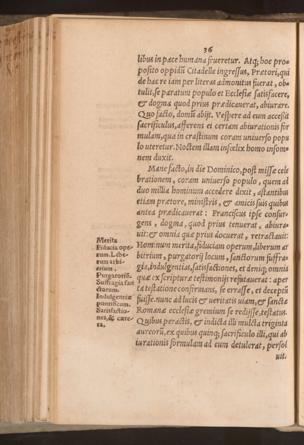 36
libus in pace humana frueretur. Atq; hoc pro-
posito oppidũ Citadelle ingressus, Prætori, qui
de hac re iam per literas admonitus fuerat, ob-
tulit, se paratum populo et Ecclesiæ satisfacere,
& dogma quod prius prædicauerat, abiurare.
Quo facto, domũ abijt. Vespere ad eum accessit
sacrificulus, afferens et certam abiurationis for
mulam, qua in crastinum coram uniuerso popu
lo uteretur. Noctem illam infœlix homo insom-
nem duxit.
Mane facto, in die Dominico, post missæ cele
brationem, coram uniuerso populo, quem ad
duo millia hominum accedere dixit, astantibus
etiam prætore, ministris, & amicis suis quibus
antea prædicauerat: Franciscus ipse consur-
gens, dogma, quod prius tenuerat, abiura-
uit: & omnia quæ prius docuerat, retractauit:
Hominum merita, fiduciam operum, liberum ar
bitrium, purgatorij locum, sanctorum suffra-
gia, indulgentias, satisfactiones, et deniq; omnia
quæ ex scripturæ testimonijs refutauerat: aper
ta testatione confirmans, se errasse, et deceptũ
fuisse. nunc ad lucis & ueritatis uiam, & sanctæ
Romanæ ecclesiæ gremium se redisse, testatus.
Quibus peractis, & indicta illi multcta triginta
aureorũ, ex quibus quinq; sacrificulo illi, qui ab
iurationis formulam ad eum detulerat, persol
uit.
Merita
Fiducia ope-
rum. Libe-
rum arbi-
trium.
Purgatoriũ.
Suffragia san
ctorum.
Indulgentiæ
pontificum.
Satisfactio-
nes, & cæte-
ra.